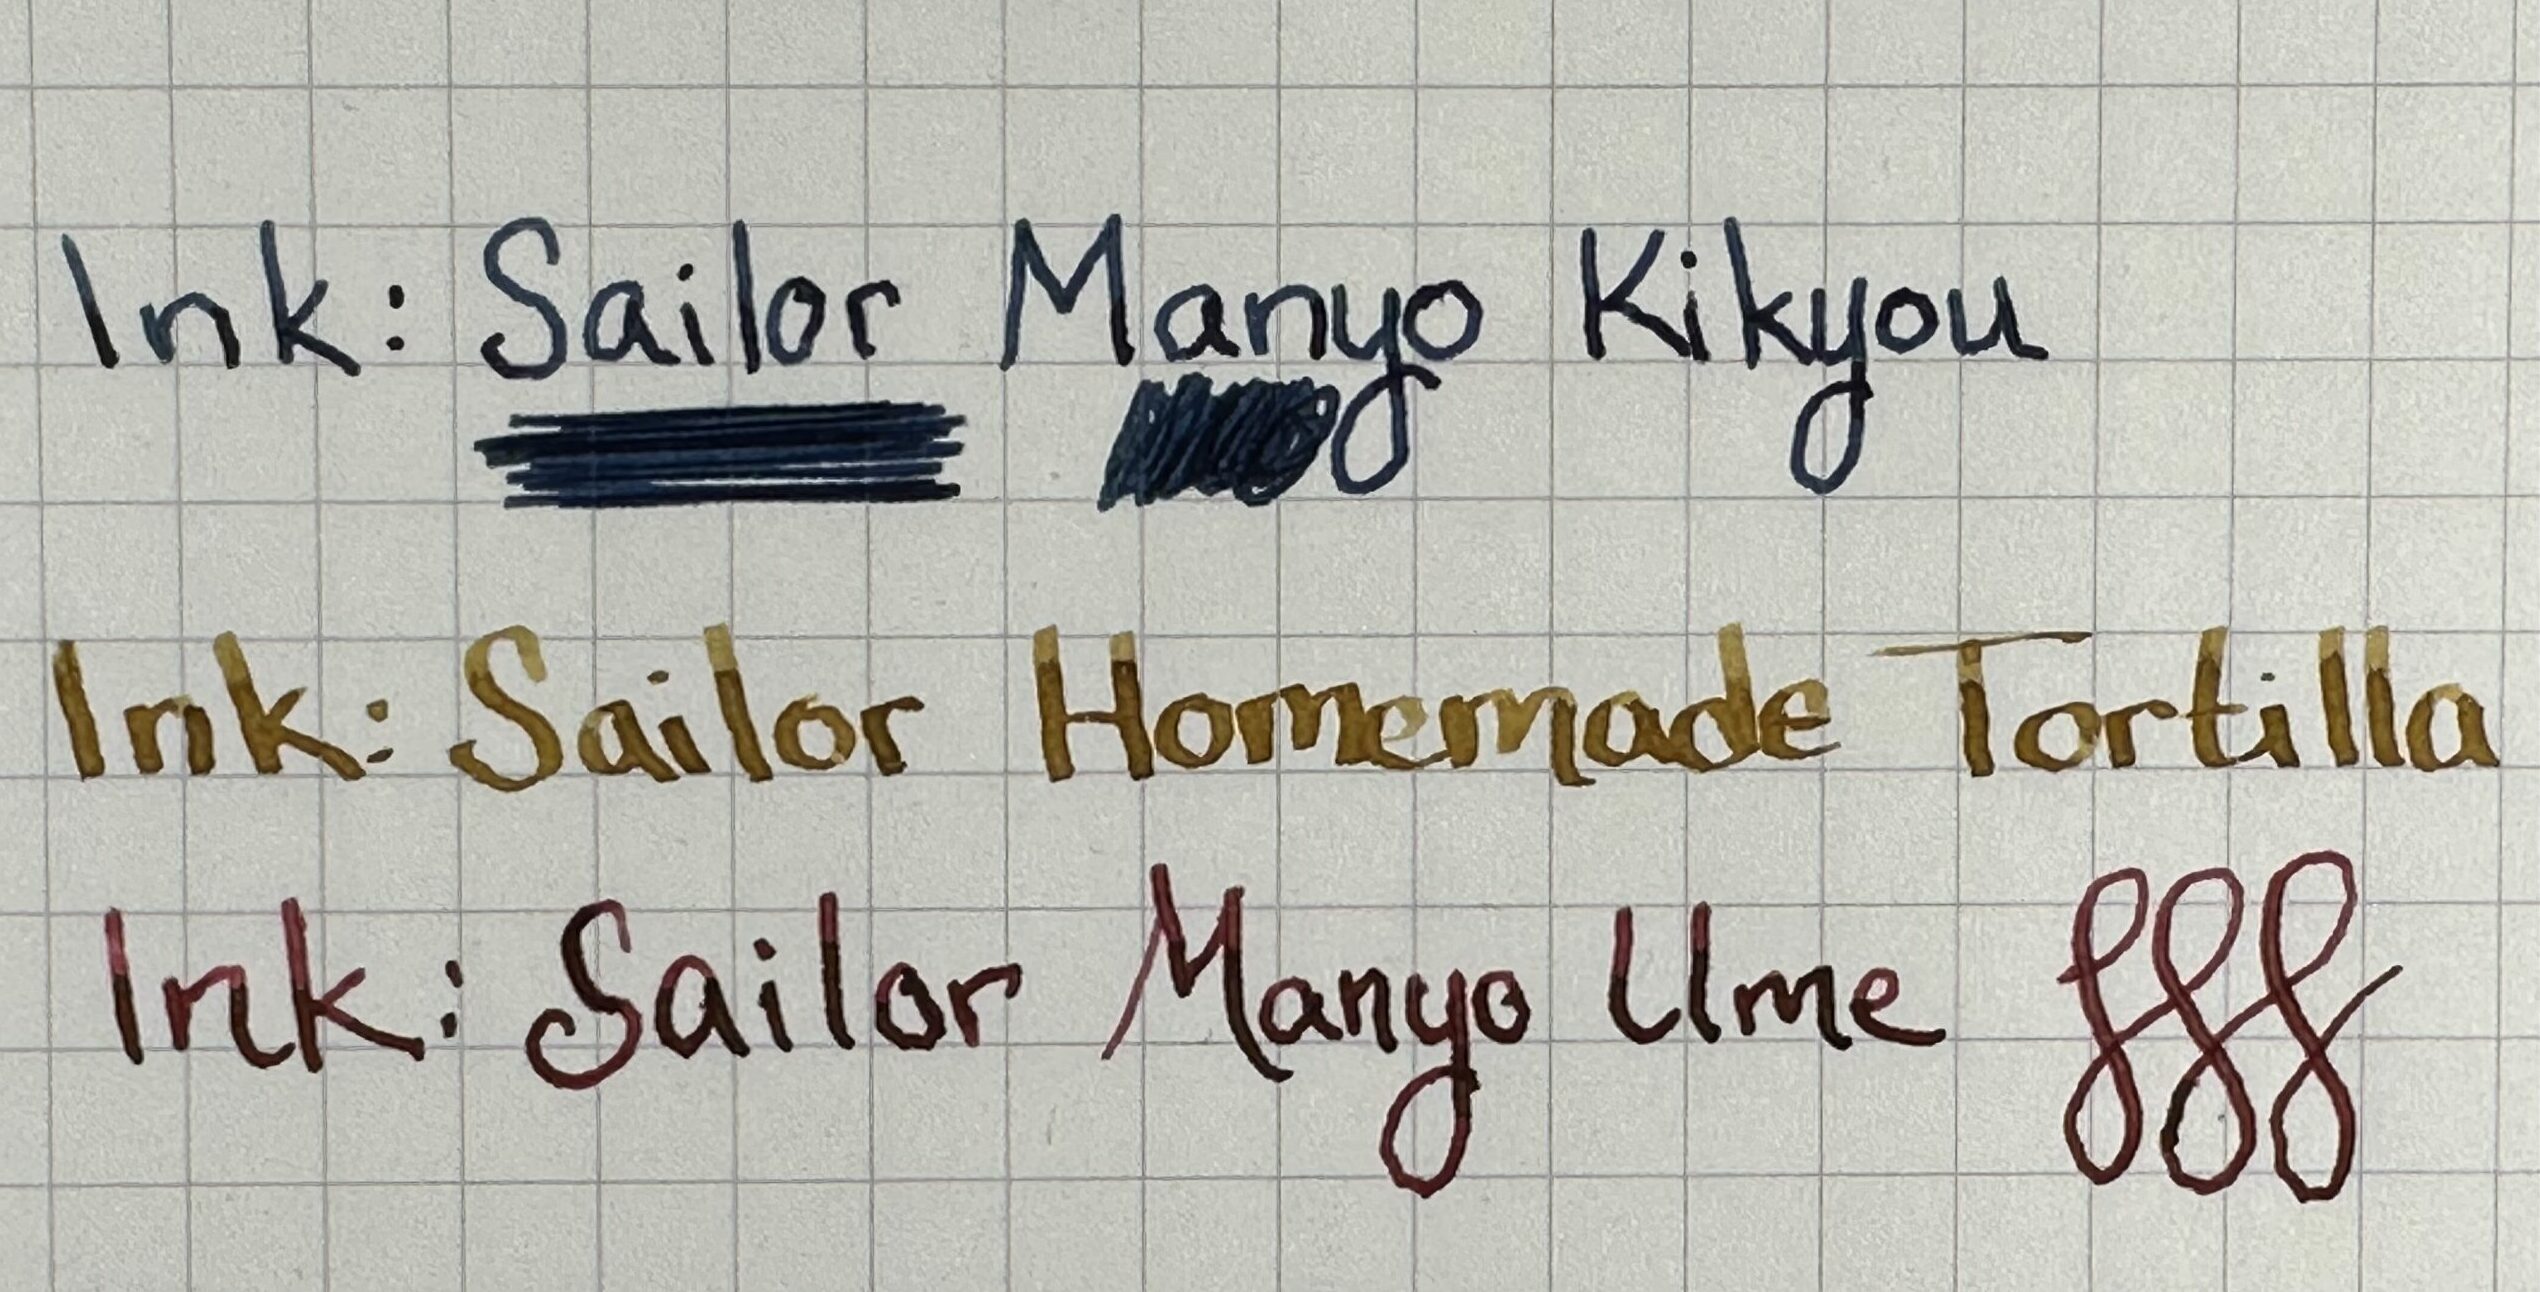 Ink: Sailor Manyo Kikyou
Ink: Sailor Homemade Tortilla
Ink: Sailor Manyo Ume